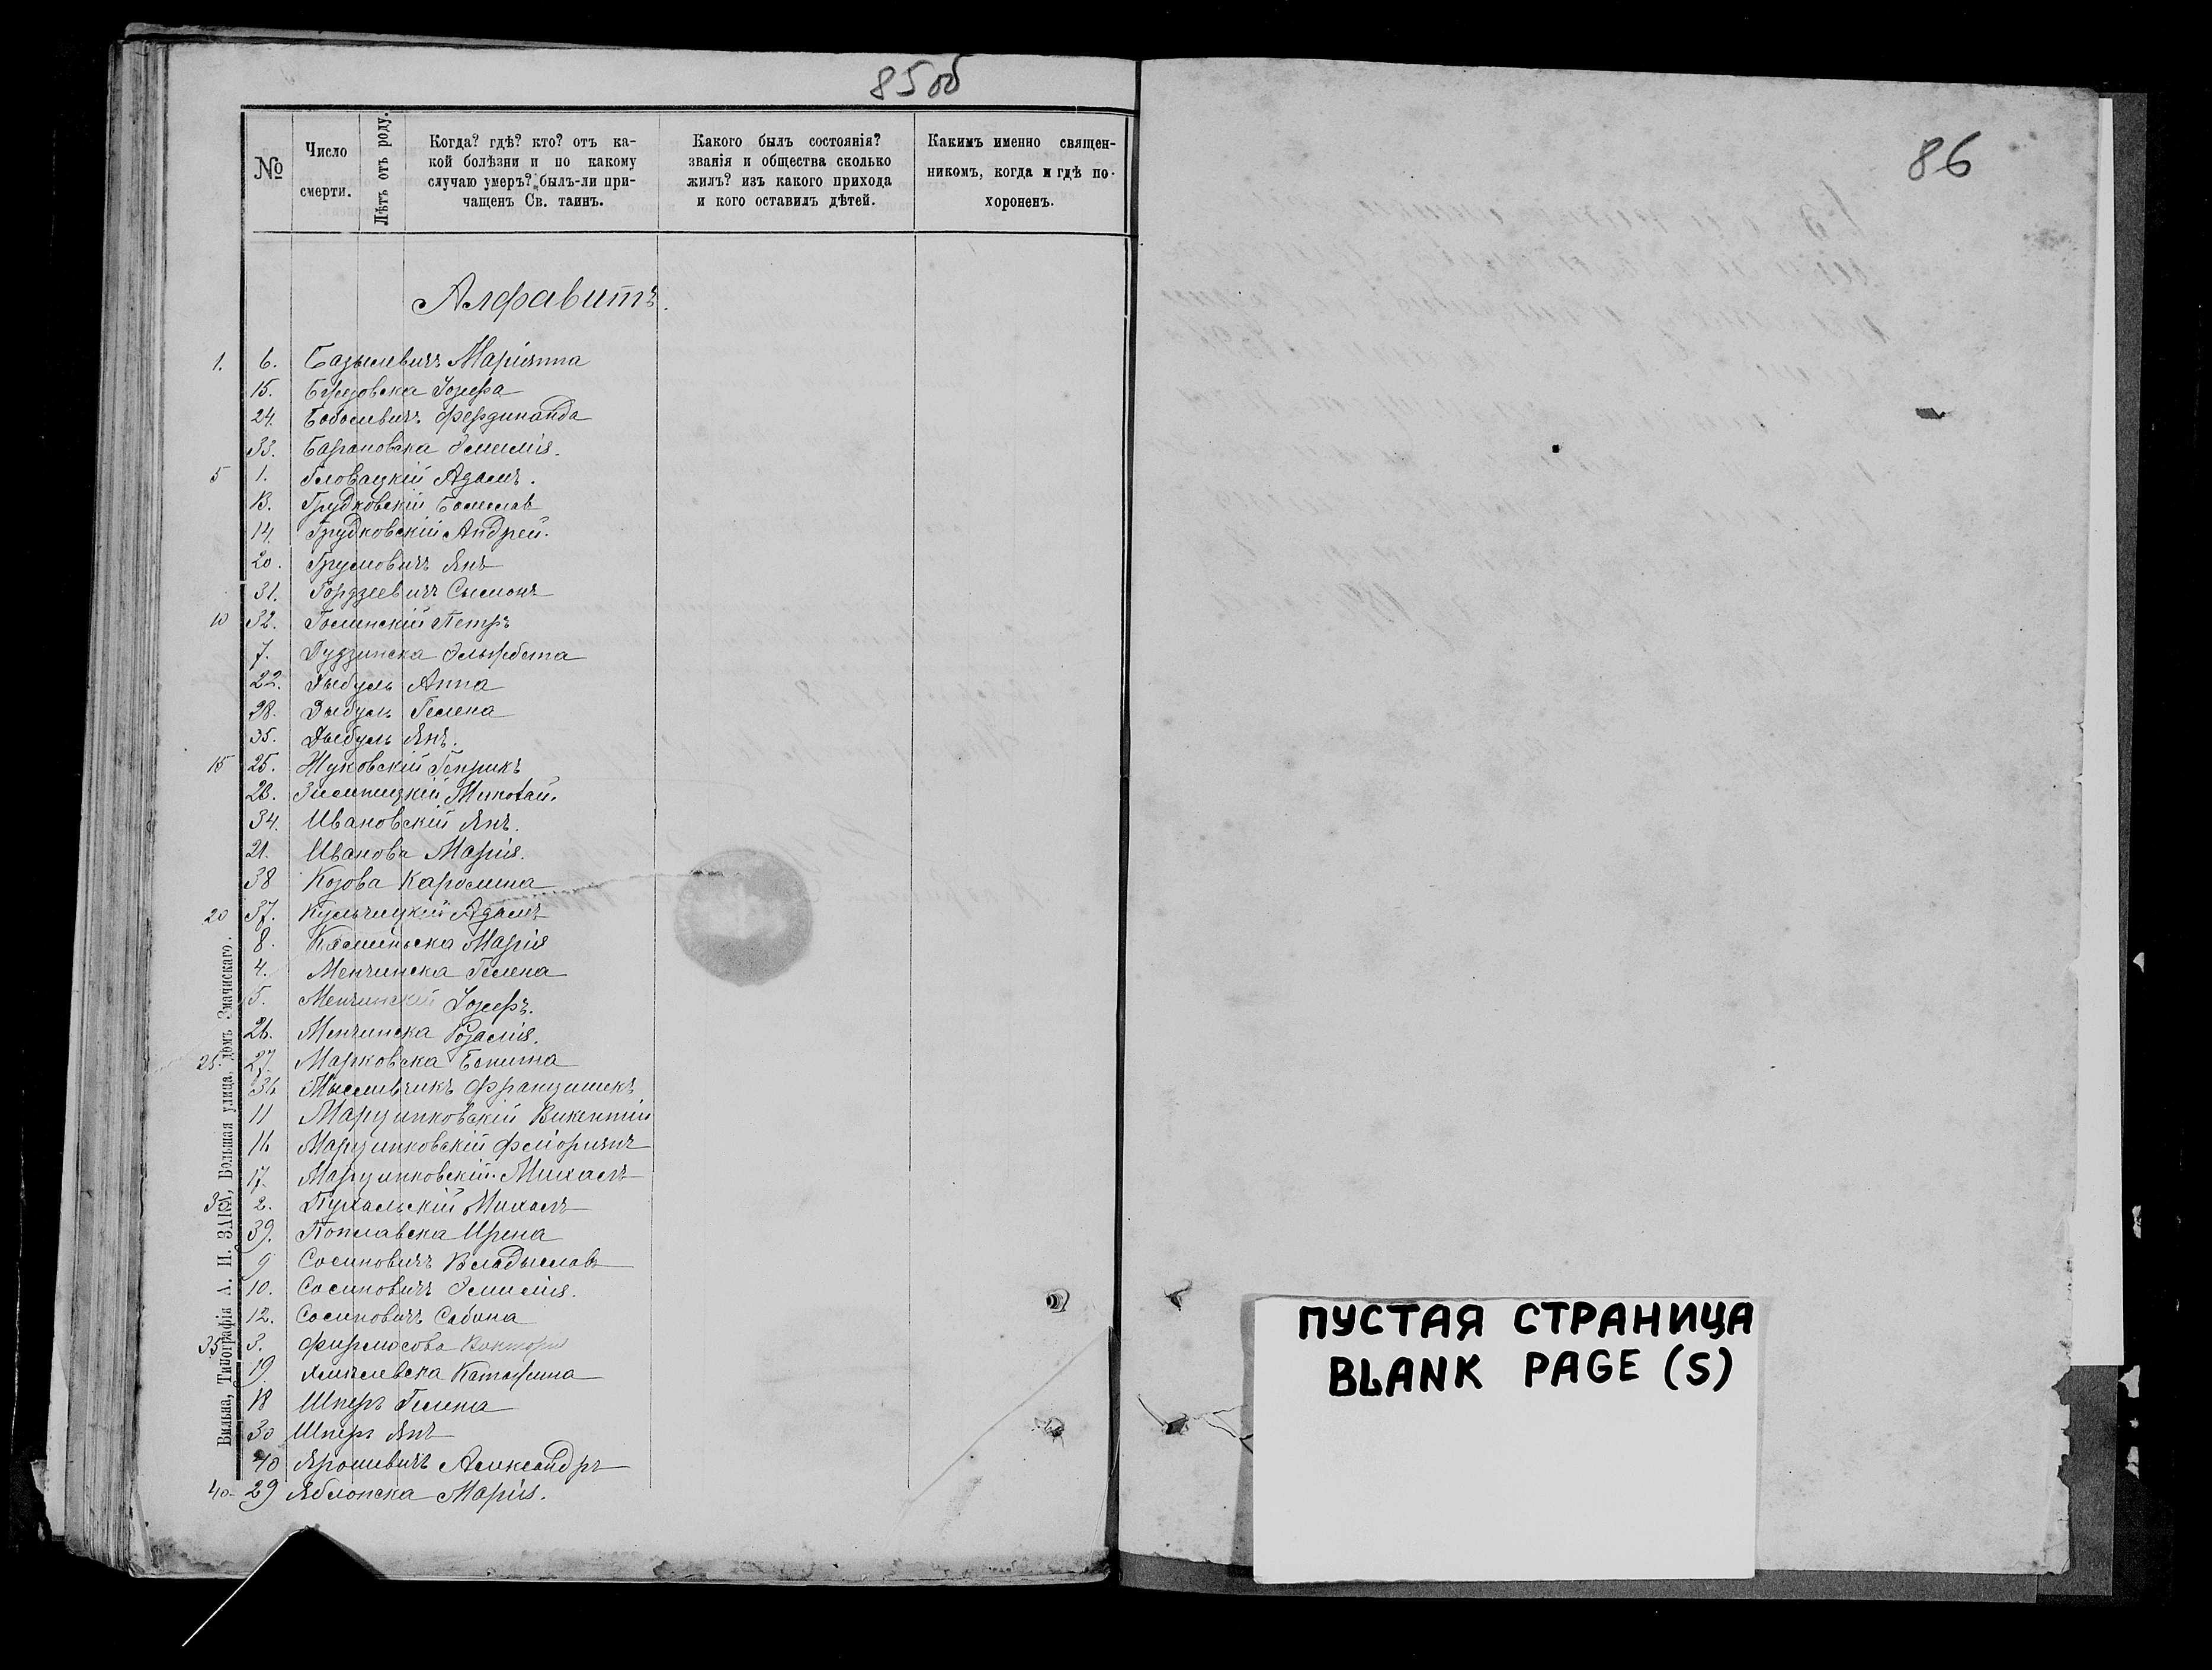 85об
№
Число
смерти.
Лѣтъ отъ роду.
Когда? гдѣ? кто? отъ ка-
кой болѣзни и по какому
случаю умеръ? былъ-ли при-
чащенъ Св. таинъ.
Какого былъ состоянія?
званія и общества сколько
жилъ? изъ какого прихода
и кого оставилъ дѣтей.
Какимъ именно священ-
никомъ, когда и гдѣ по-
хороненъ.
Алфавитъ.
1. 6. Базылевичъ Маріянна
15. Юзефа
24. Фердинанда
33. Барановска Эмилія.
5 1. Гловацкій Адамъ.
13. Грудковскій Болеслав
14. Грудковскій Андрей.
20. Янъ
31. Гордзеевичъ Сымонъ
10 32. Голинскій Петръ
7. Дудзинска Эльжбета
22. Дыбуль Анна
28. Дыбуль Гелена
35. Дыбуль Янъ.
15 25. Жуковскій Генрикъ
23. Миколай.
34. Ивановскій Янъ.
21. Иванова Марія.
38 Козова Каролина
20 37. Кульчицкій Адамъ
8. Марія
4. Менчинска Гелена
5. Менчинскій Юзефъ.
26. Менчинска Розалія.
25. 27. Марковска Бенигна
36 Мысливчикъ Францишекъ
11 Марцинковскій Викентій
16 Марцинковскій Флорыянъ
17. Марцинковскій Михаилъ
30 2. Пухальскій Михалъ
39. Поплавска Ирена
9 Сосиновичъ Владыславъ
10. Сосиновичъ Эмилія.
12. Сосиновичъ Сабина
35 3. Фирмосова
19. Хмѣлевска Катарина
18 Шперъ Гелена
30 Шперъ Янъ
40 Ярошевичъ Александръ
40 29 Яблонска Марія.
Вильна, Типографія А. И. ЗАКА, Большая улица, домъ Змачискаго.
86
ПУСТАЯ СТРАНИЦА
BLANK PAGE (S)